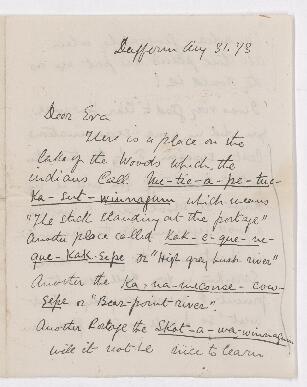 Dufferin Aug 31. 73
Dear Eva
There is a place on the
Lake of the Woods which the
indians Call. Me-tic-a-pe-tic-
Ka-sut-winnagum which means
"The stick standing at the portage"
Another place called Kak-e-que-ne-
que-Kak-Sepe or "High grey bush river"
Another the Ka-na-miconse-cow-
Sepe or "Bear-point-river".
Another Portage the Skot-a-wa-winnagum
will it not be nice to learn